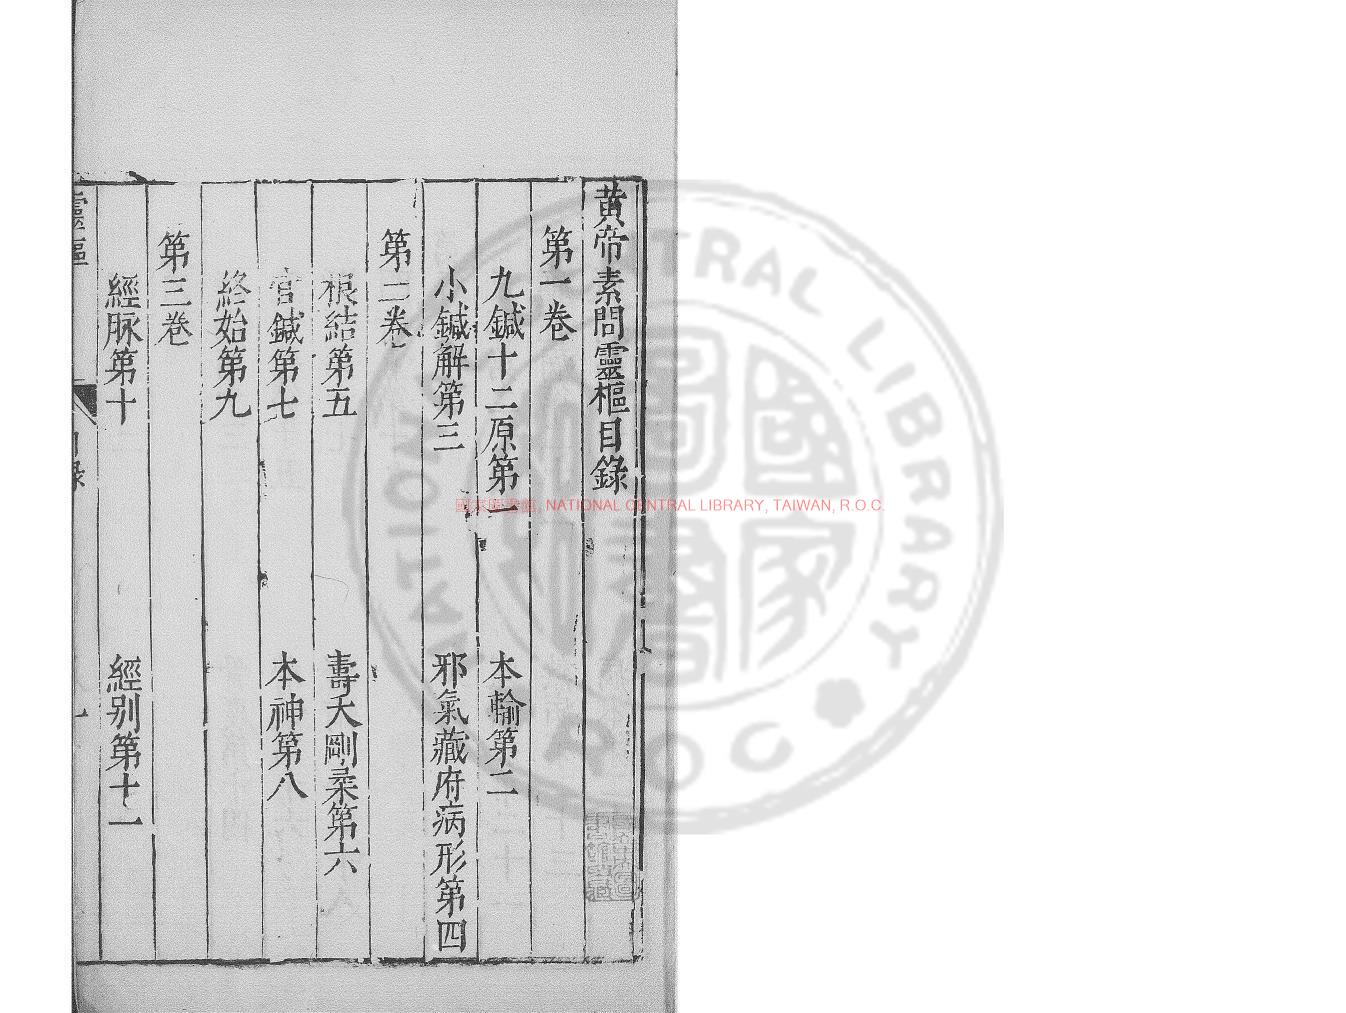 黃帝素問靈樞目錄
第一卷
九鍼十二原第一
本輸第二
小鍼解第三
邪氣藏府病形第四
第二卷
根結第五
壽夭剛柔第六
官鍼第七
本神第八
終始第九
第三卷
經脉第十
經别第十一
靈樞
目錄
一
國家圖書館, NATIONAL CENTRAL LIBRARY, TAIWAN, R.O.C.
NATIONAL CENTRAL LIBRARY
R O C
國家圖書館